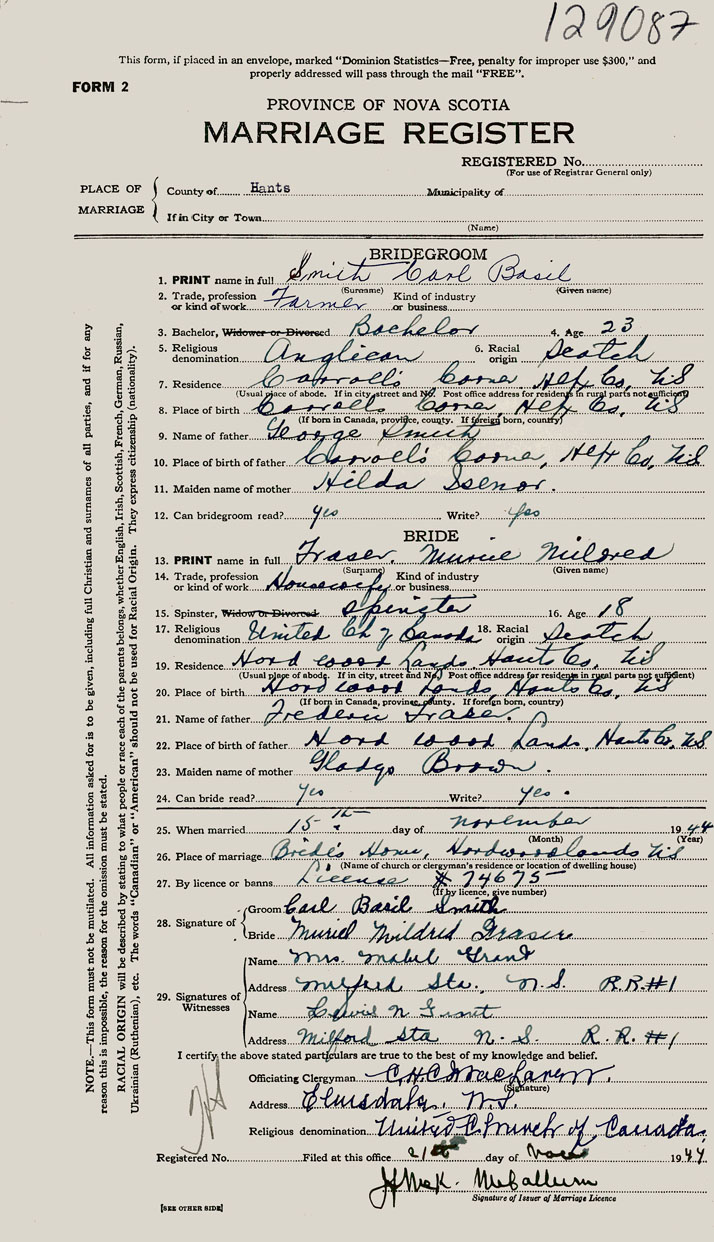 129087
This form, if placed in an envelope, marked "Dominion Statistics—Free, penalty for improper use $300," and
properly addressed will pass through the mail "FREE".
FORM 2
PROVINCE OF NOVA SCOTIA
MARRIAGE REGISTER
REGISTERED No.
(For use of Registrar General only)
PLACE OF MARRIAGE
County of Hants Municipality of
If in City or Town
(Name)
BRIDEGROOM
1. PRINT name in full Smith Carl Basil
(Surname) (Given name)
2. Trade, profession or kind of work Farmer Kind of industry or business
3. Bachelor, Widower or Divorced Bachelor 4. Age 23
5. Religious denomination Anglican 6. Racial origin Scotch
7. Residence Carroll's Corner, Hfx Co, NS
(Usual place of abode. If in city, street and No. Post office address for residents in rural parts not sufficient)
8. Place of birth Carroll's Corner, Hfx Co, NS
(If born in Canada, province, county. If foreign born, country)
9. Name of father George Smith
10. Place of birth of father Carroll's Corner, Hfx Co, NS
11. Maiden name of mother Hilda Isenor.
12. Can bridegroom read? yes Write? yes
BRIDE
13. PRINT name in full Fraser, Muriel Mildred
(Surname) (Given name)
14. Trade, profession or kind of work Housework Kind of industry or business
15. Spinster, Widow or Divorced Spinster 16. Age 18
17. Religious denomination United Ch of Canada 18. Racial origin Scotch
19. Residence Hard wood Lands, Hants Co, NS
(Usual place of abode. If in city, street and No. Post office address for residents in rural parts not sufficient)
20. Place of birth Hard wood Lands, Hants Co, NS
(If born in Canada, province, county. If foreign born, country)
21. Name of father Frederic Fraser.
22. Place of birth of father Hard wood Lands, Hants Co, NS
23. Maiden name of mother Gladys Brown.
24. Can bride read? yes Write? yes.
25. When married 15th day of November 1944
(Month) (Year)
26. Place of marriage Bride's Home, Hardwoodlands NS
(Name of church or clergyman's residence or location of dwelling house)
27. By licence or banns License # 74675
(If by licence, give number)
28. Signature of Groom Carl Basil Smith
Bride Muriel Mildred Fraser
29. Signatures of Witnesses
Name Mrs. Mabel Grant
Address Milford Sta., N.S. R.R.#1
Name N Grant
Address Milford Sta N.S. R.R. #1
I certify the above stated particulars are true to the best of my knowledge and belief.
Officiating Clergyman
(Signature)
Address Elmsdale, N.S.
Religious denomination United Church of Canada.
Registered No. Filed at this office 21st day of Nov 1944
McCallum
Signature of Issuer of Marriage Licence
[SEE OTHER SIDE]
NOTE.—This form must not be mutilated. All information asked for is to be given, including full Christian and surnames of all parties, and if for any
reason this is impossible, the reason for the omission must be stated.
RACIAL ORIGIN will be described by stating to what people or race each of the parents belongs, whether English, Irish, Scottish, French, German, Russian,
Ukrainian (Ruthenian), etc. The words "Canadian" or "American" should not be used for Racial Origin. They express citizenship (nationality).